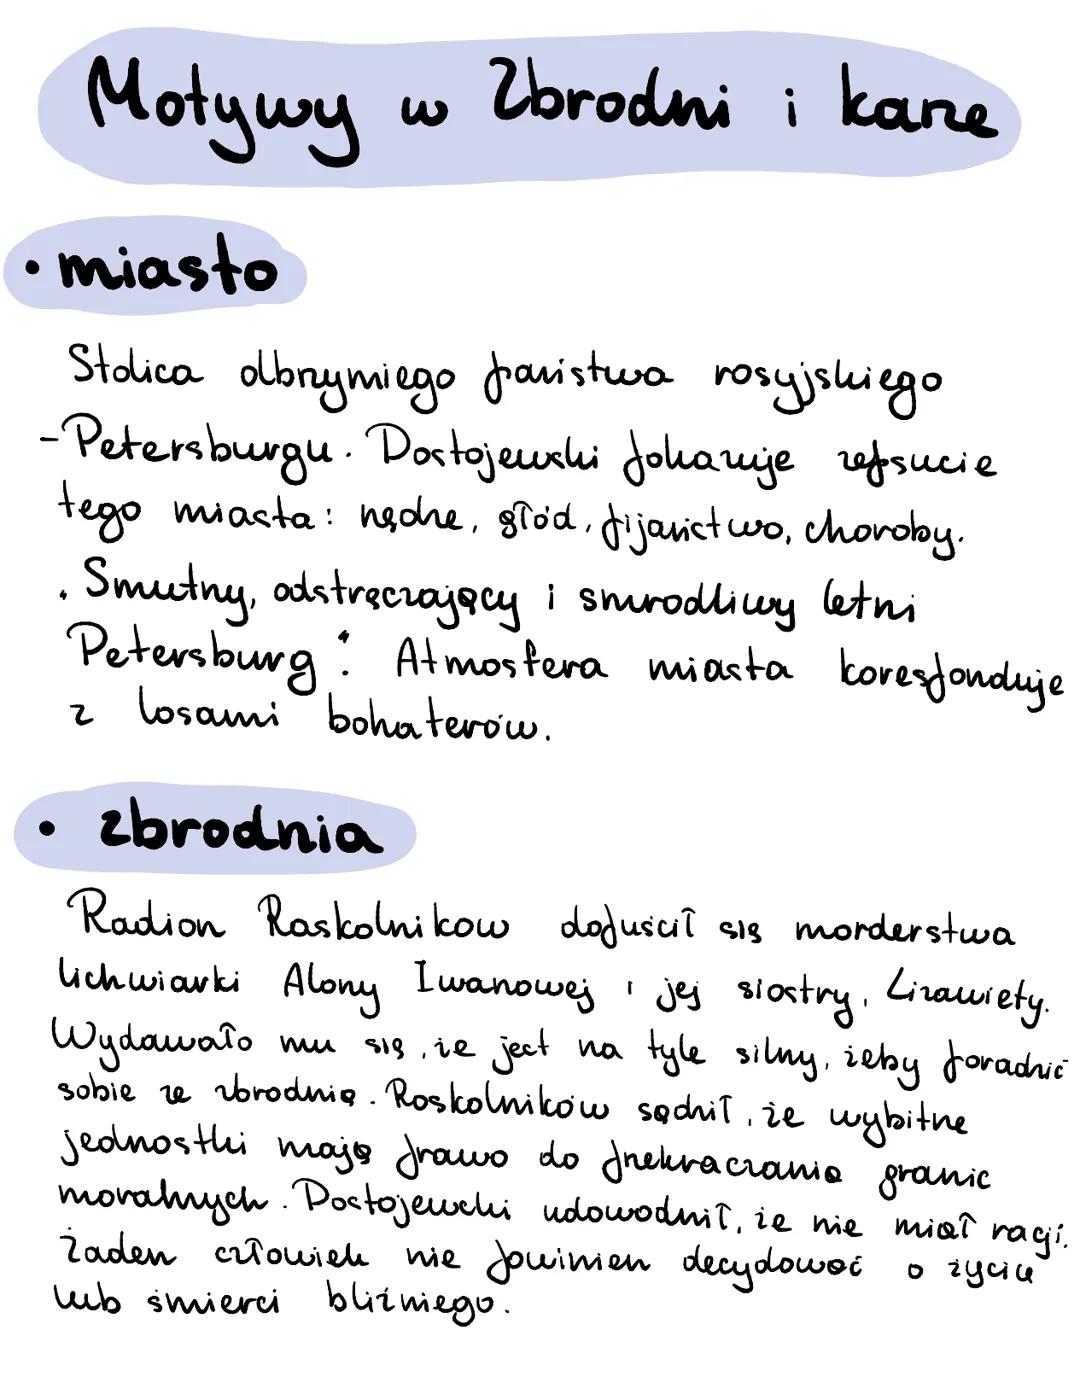 Motywy w Zbrodni i karze
• miasto
Stolica olbrzymiego państwa rosyjskiego
- Petersburgu. Dostojewski pokazuje zepsucie
tego miasta: nędze, głód, pijaństwo, choroby.
„Smutny, odstręczający i smrodliwy letni
Petersburg". Atmosfera miasta koresponduje
z losami bohaterów.
• zbrodnia
Radion Raskolnikow dopuścił się morderstwa
lichwiarki Alony Iwanowej i jej siostry, Lizawiety.
Wydawało mu się, że jest na tyle silny, żeby poradzić
sobie ze zbrodnią. Roskolników sądził, że wybitne
jednostki mają prawo do przekraczania granic
moralnych. Dostojewski udowodnił, że nie miał racji.
Żaden człowiek nie powinien decydować o życiu
lub śmierci bliźniego.